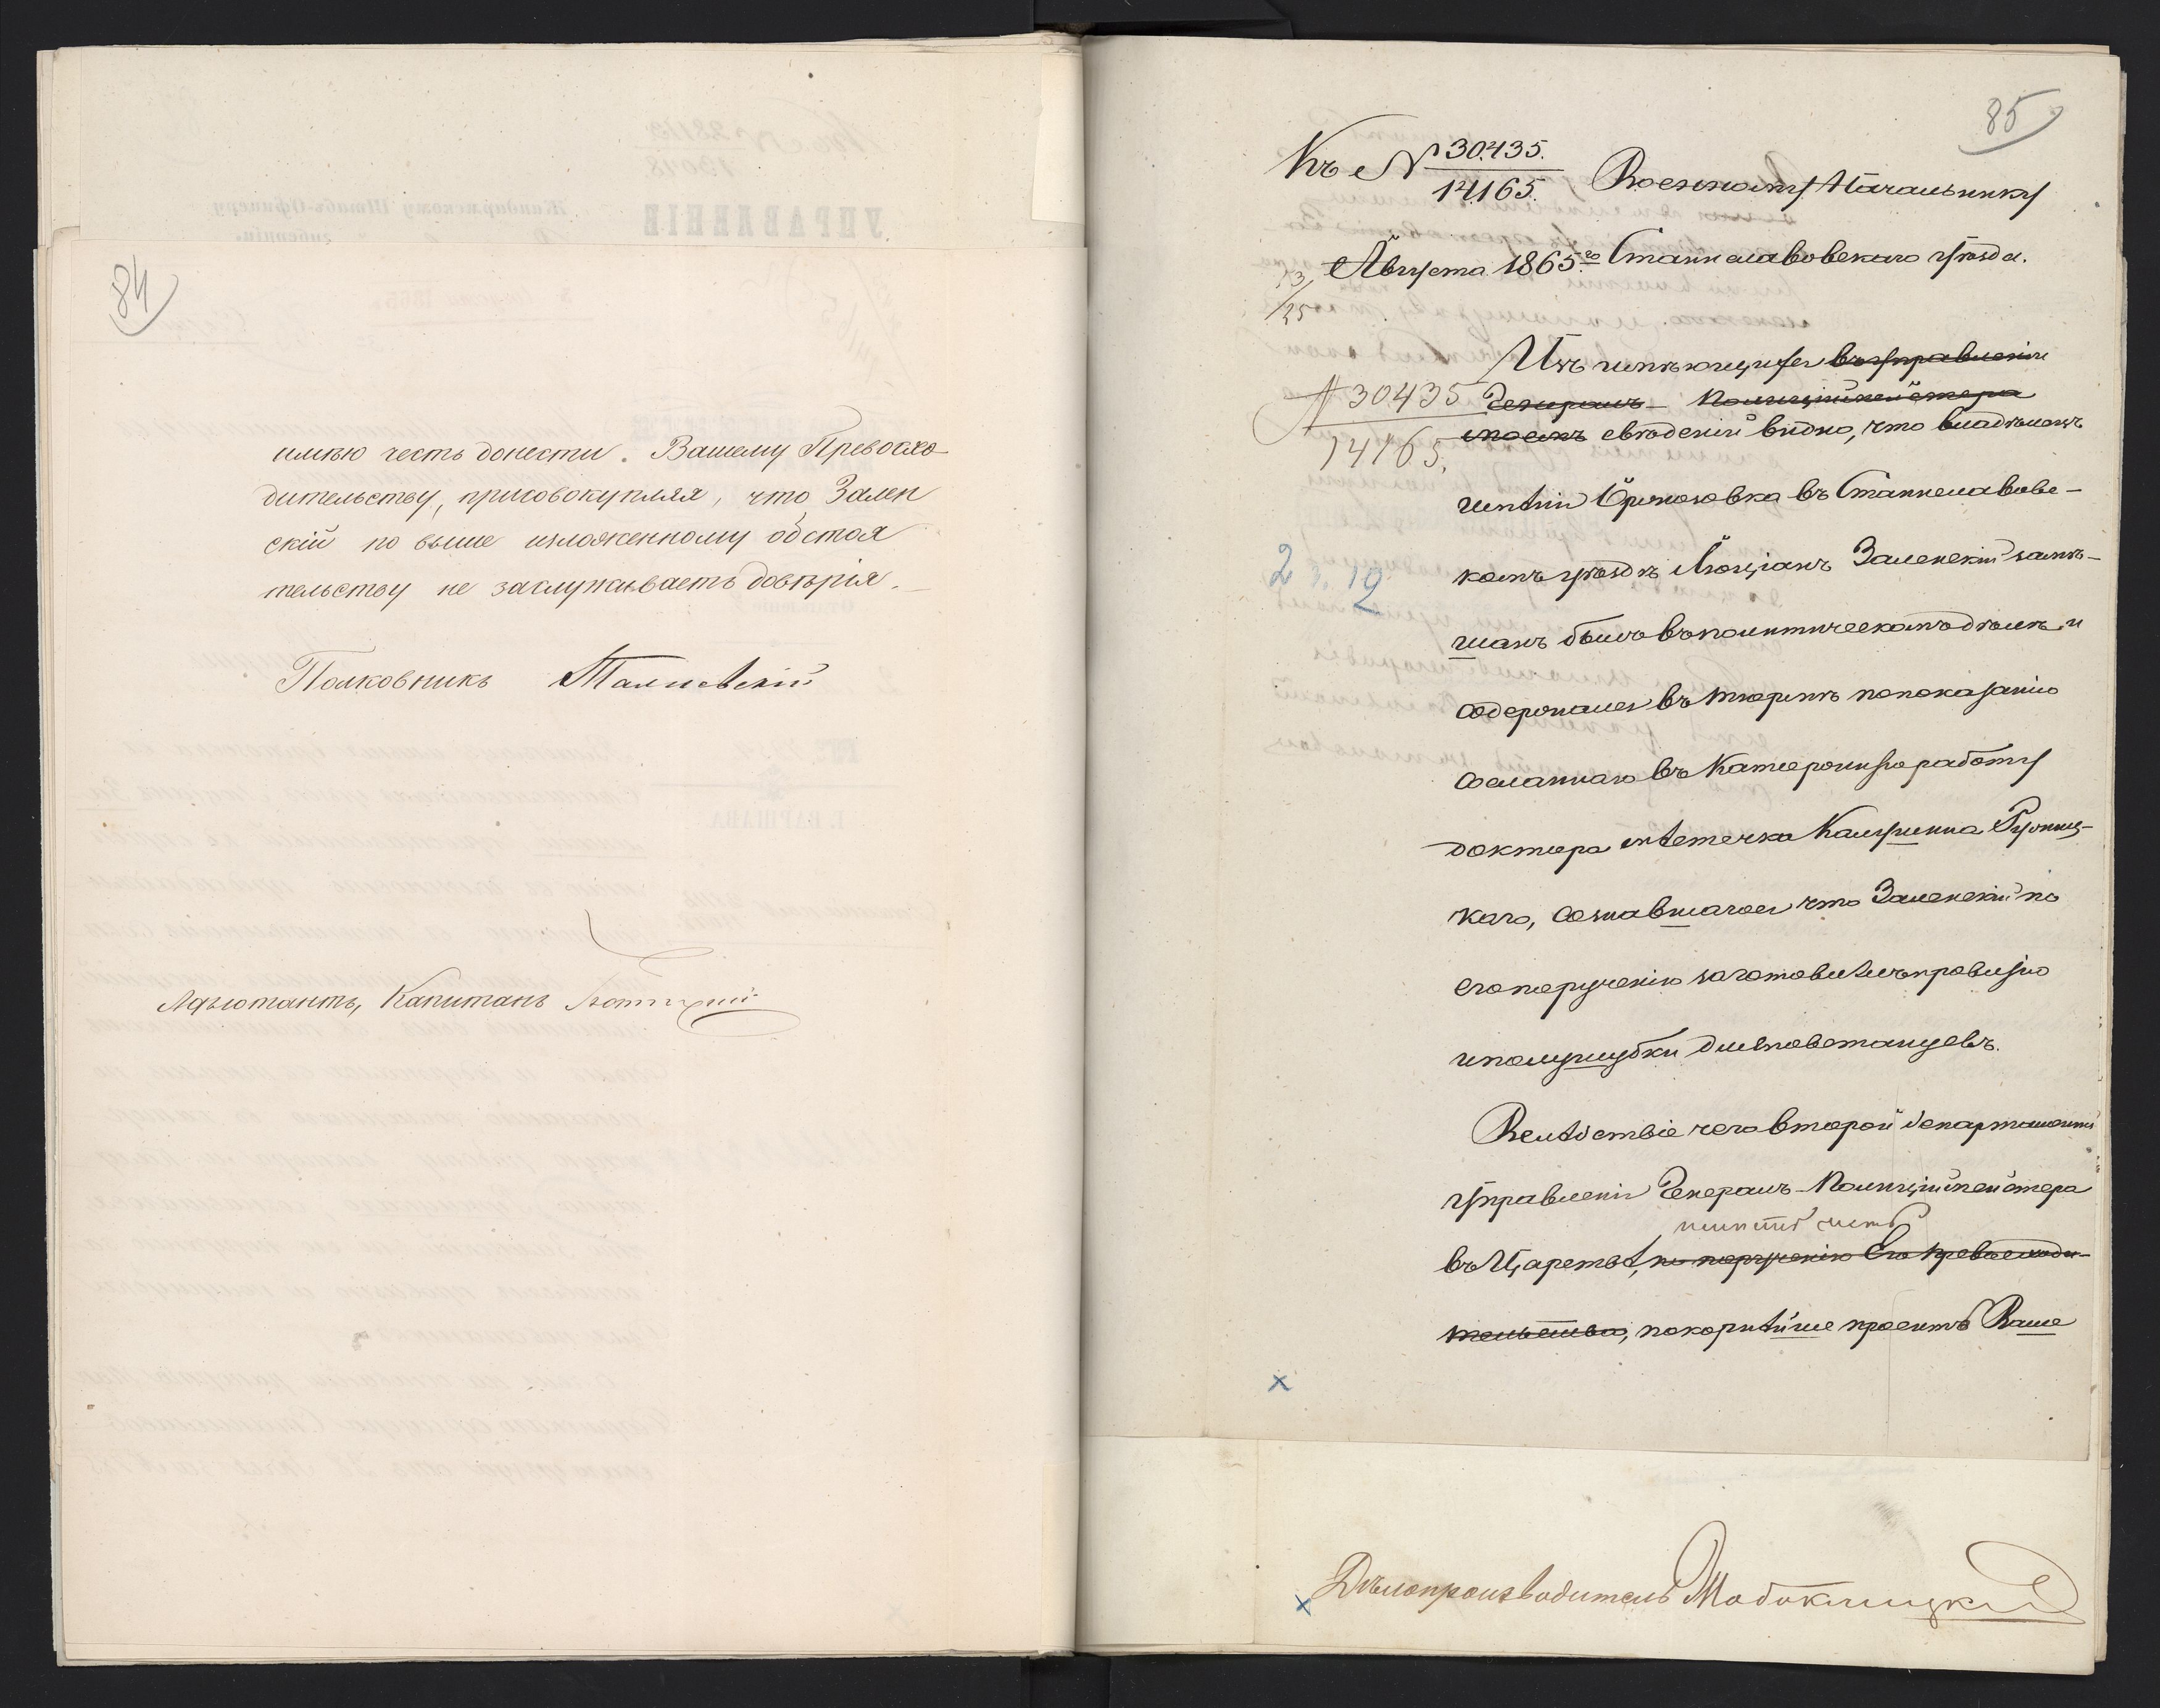 84
имѣю честь донести Вашему Превосхо-
дительству, присовокупляя, что Зален
скій по выше изложенному обстоя
тельству не заслуживаетъ довѣрія.
Полковникъ
Адъютантъ, Капитанъ
85
Къ № 30435.
14165.
Военному Начальнику
13/25 Августа 1865 го Станиславовскаго уѣзда.
Изъ имѣющихся въ управленіи
№ 30435
14165.
Генералъ-Полиціймейстера
свѣденій видно, что владѣлецъ
имѣнія въ Станиславовс-
2 3. 19
комъ уѣздѣ Люціанъ Заленскій замѣ-
шанъ былъ въ политическомъ дѣлѣ и
содержался въ тюрмѣ по показанію
сосланнаго въ Каторжную работу
доктора мѣстечка Калушина
каго, сознавшагося что Заленскій по
его порученію заготовилъ провизію
и полушубки для повстанцевъ.
Вслѣдствіе чего второй департаментъ
Управленія Генералъ-Полиціймейстера
имѣетъ честь
въ Царствѣ, по порученію Его Превосходи-
тельства, покорнѣйше проситъ Ваше
х
х Дѣлопроизводитель